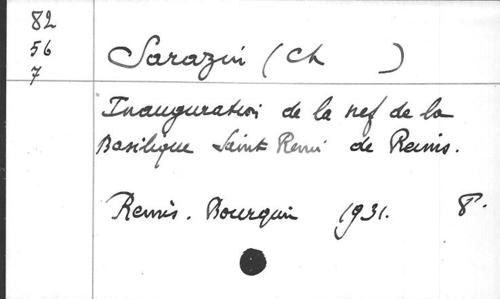 82
56
7
Sarazin (Ch )
Inauguration de la nef de la
Basilique Saint Remi de Reims.
Reims. Bourquin 1931. 8°.